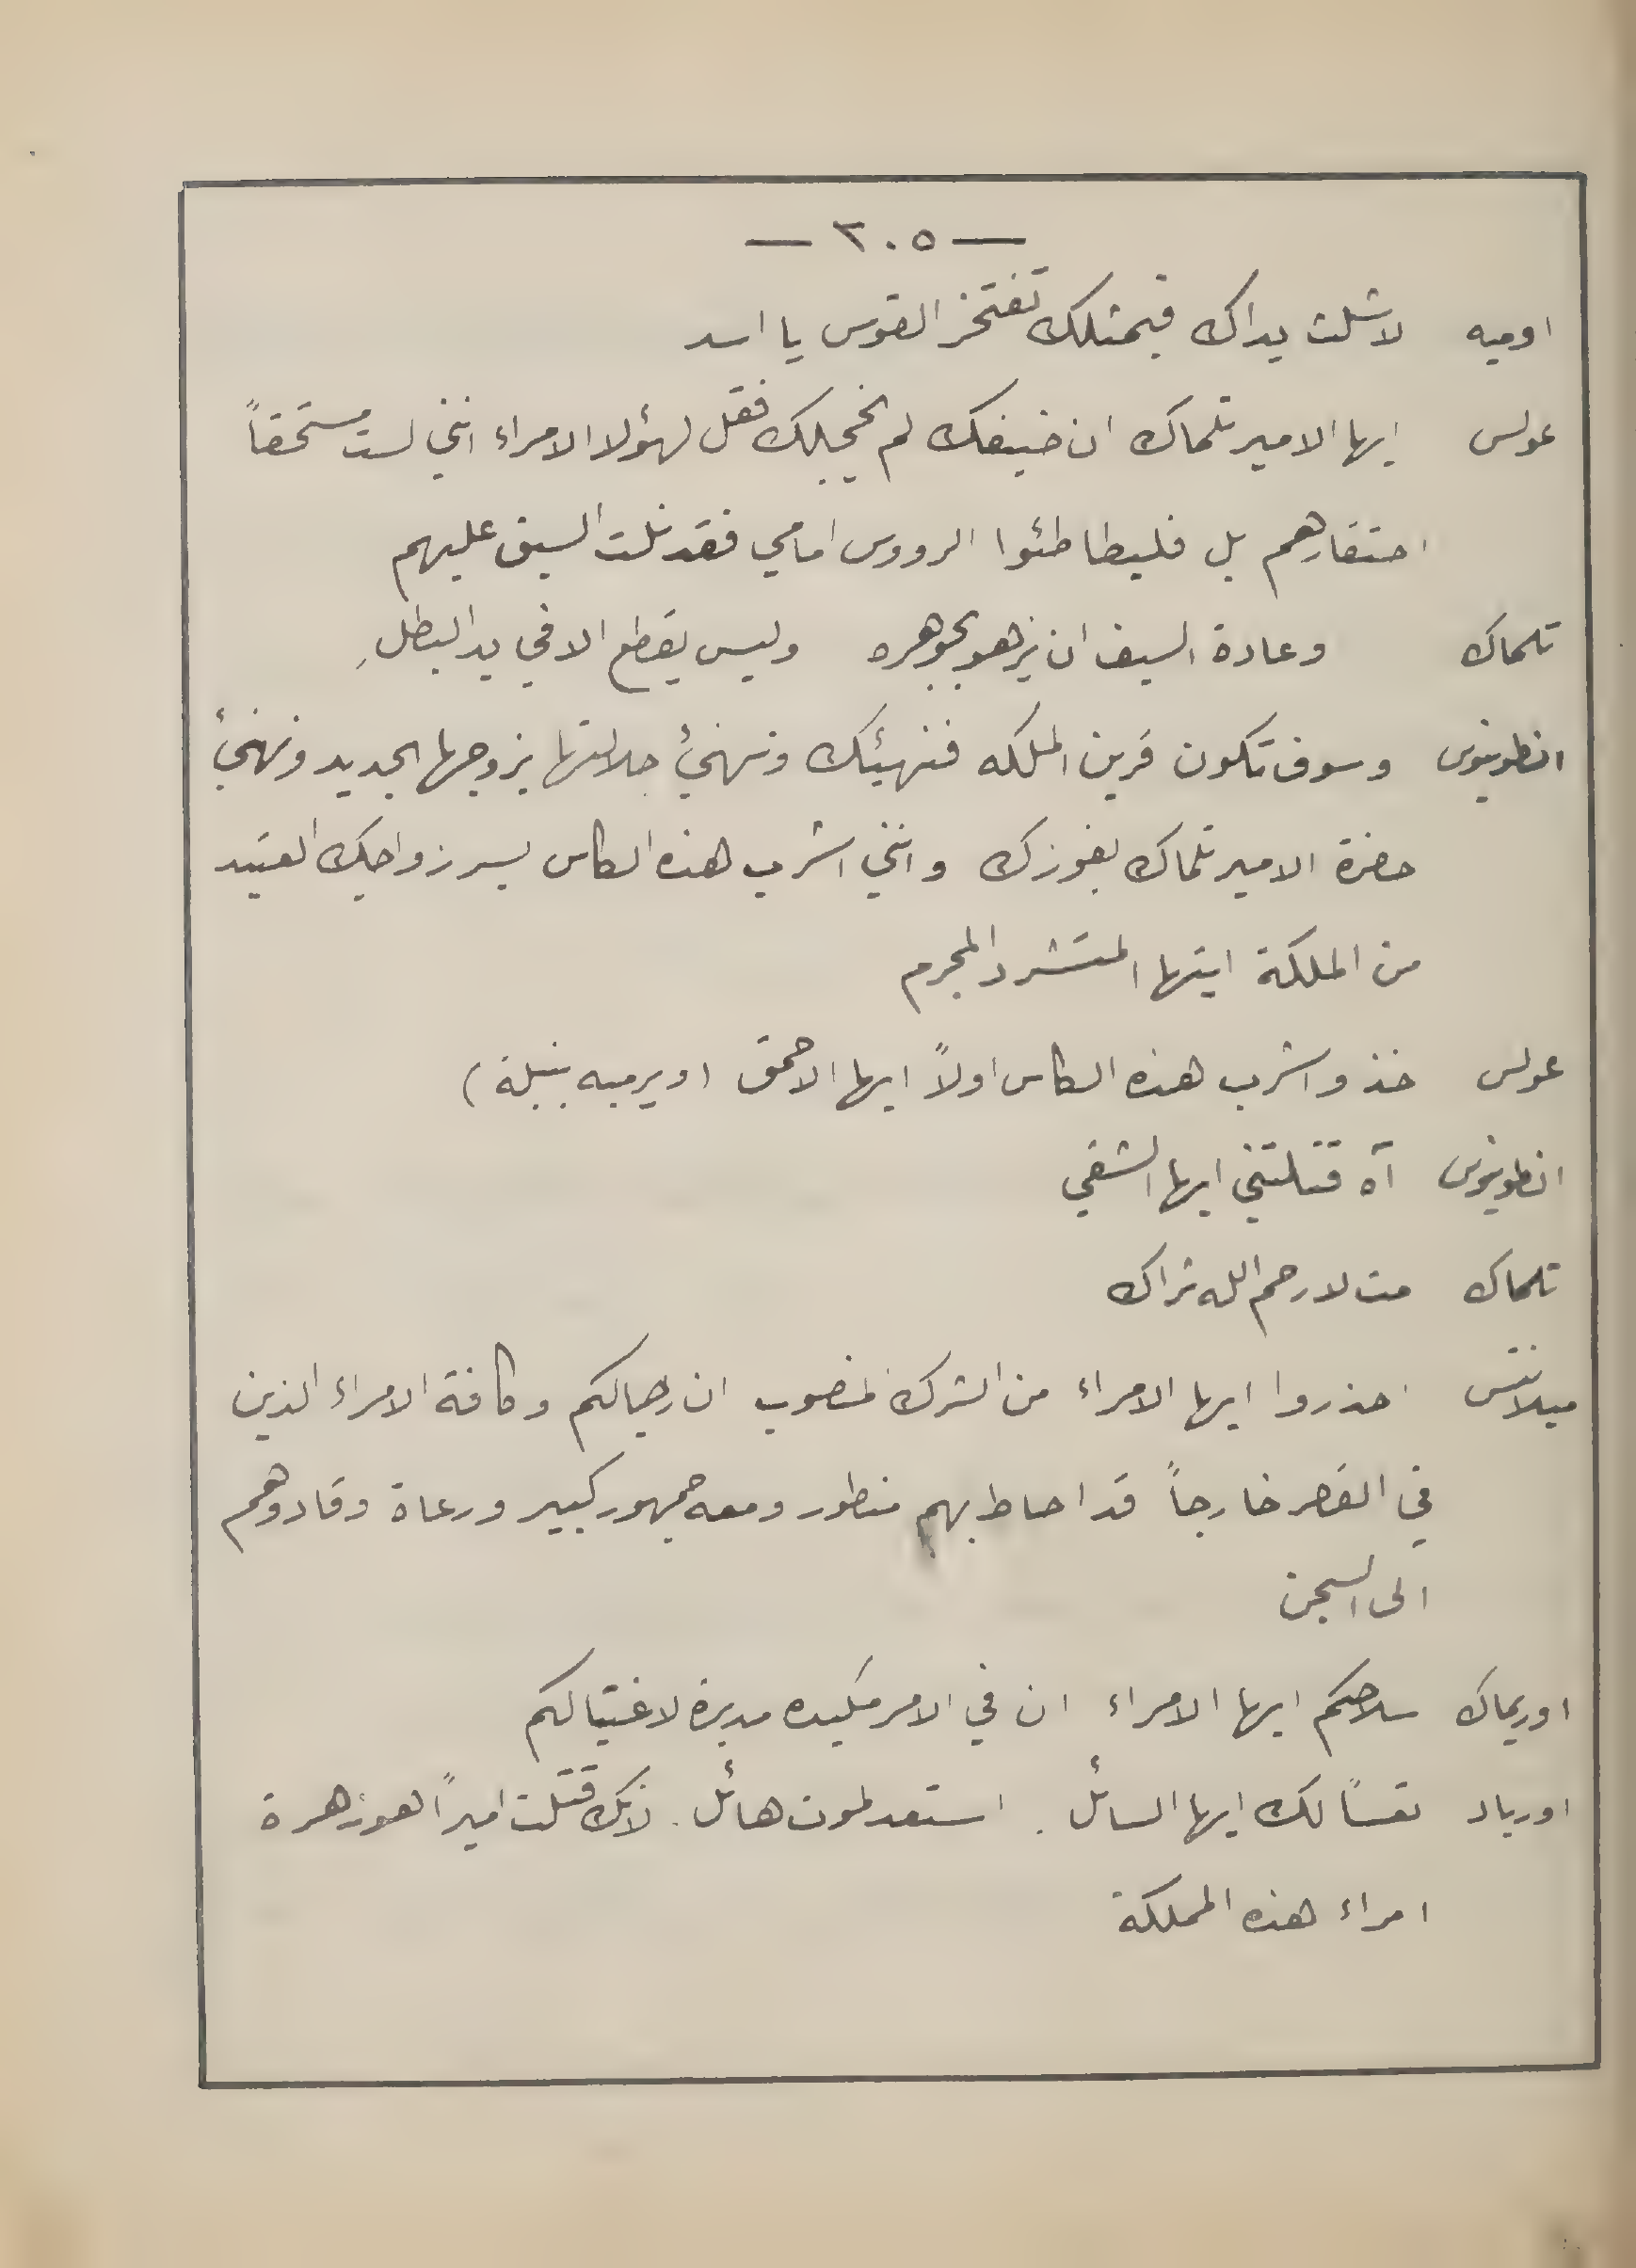 — ٣٠٥ —
اوميه لا شلت يداك فبمثلك تفتخر القوس يا اسد
عولس ايها الامير تلماك ان ضيفك لم يخجلك فقل لهؤلا الامراء انني لست مستحقاً
احتقارهم بل فليطاطئوا الرووس امامي فقد نلت السبق عليهم
تلماك وعادة السيف ان يزهو بجوهره وليس يقطع الا في يد البطلِ
انطونيوس وسوف تكون قرين الملكه فنهيئك ونهنئ جلالتها بزوجها الجديد ونهنئ
حضرة الامير تلماك بفوزك وانني اشرب هذه الكاس بسر زواجك العتيد
من الملكة ايتها المتشرد المجرم
عولس خذ واشرب هذه الكاس اولاً ايها الاحمق (ويرميه بنبلة)
انطونيوس آه قتلتني ايها الشقي
تلماك مت لا رحم الله ثراك
ميلانتس احذروا ايها الامراء من الشرك المنصوب ان رجالكم وكافة الامراء الذين
في القصر خارجاً قد احاط بهم منطور ومعه جمهور كبير ورعاة وقادوهم
الى السجن
اوريماك سلاحكم ايها الامراء ان في الامر مكيده مدبرة لاغتيالكم
اورياد تعساً لك ايها السائل. استعد لموت هائل. لانك قتلت اميراً هو زهرة
امراء هذه المملكة